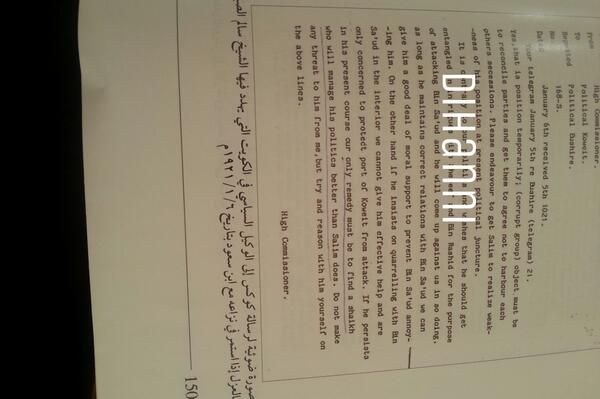 From High Commissioner.
To Political Koweit.
Repeated Political Bushire.
No 168-S.
Date January 6th received 5th 1021.
Your telegram January 5th re Bushire (telegram) 21.
Yes, that is position temporarily; (corrupt group) object must be
to reconcile parties and get them to agree not to harbour each
others secessions. Please endeavour to get Salim to realise weak-
-ness of his position at present political juncture.
It is wishes that he should get
entangled in Bin Rashid for the purpose
of attacking Bin Sa'ud and he will come up against us in so doing.
as long as he maintains correct relations with Bin Sa'ud we can
give him a good deal of moral support to prevent Bin Sa'ud annoy-
-ing him. On the other hand if he insists on quarrelling with Bin
Sa'ud in the interior we cannot give him effective help and are
only concerned to protect port of Koweit from attack. If he persists
in his present course our only remedy must be to find a shaikh
who will manage his politics better than Salim does. Do not make
any threat to him from me, but try and reason with him yourself on
the above lines.
High Commissioner.
DIHanni
صورة ضوئية لرسالة كوكس إلى الوكيل السياسي في الكويت التي يهدد فيها الشيخ سالم
بالعزل إذا استمر في نزاعه مع ابن سعود بتاريخ ١٩٢١/١/٦م
150